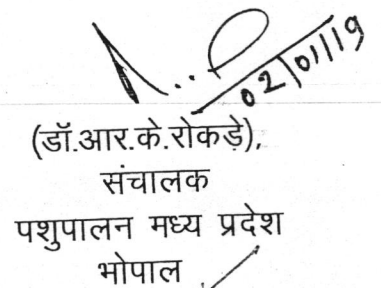 02/01/19
(डॉ.आर.के.रोकड़े),
संचालक
पशुपालन मध्य प्रदेश
भोपाल